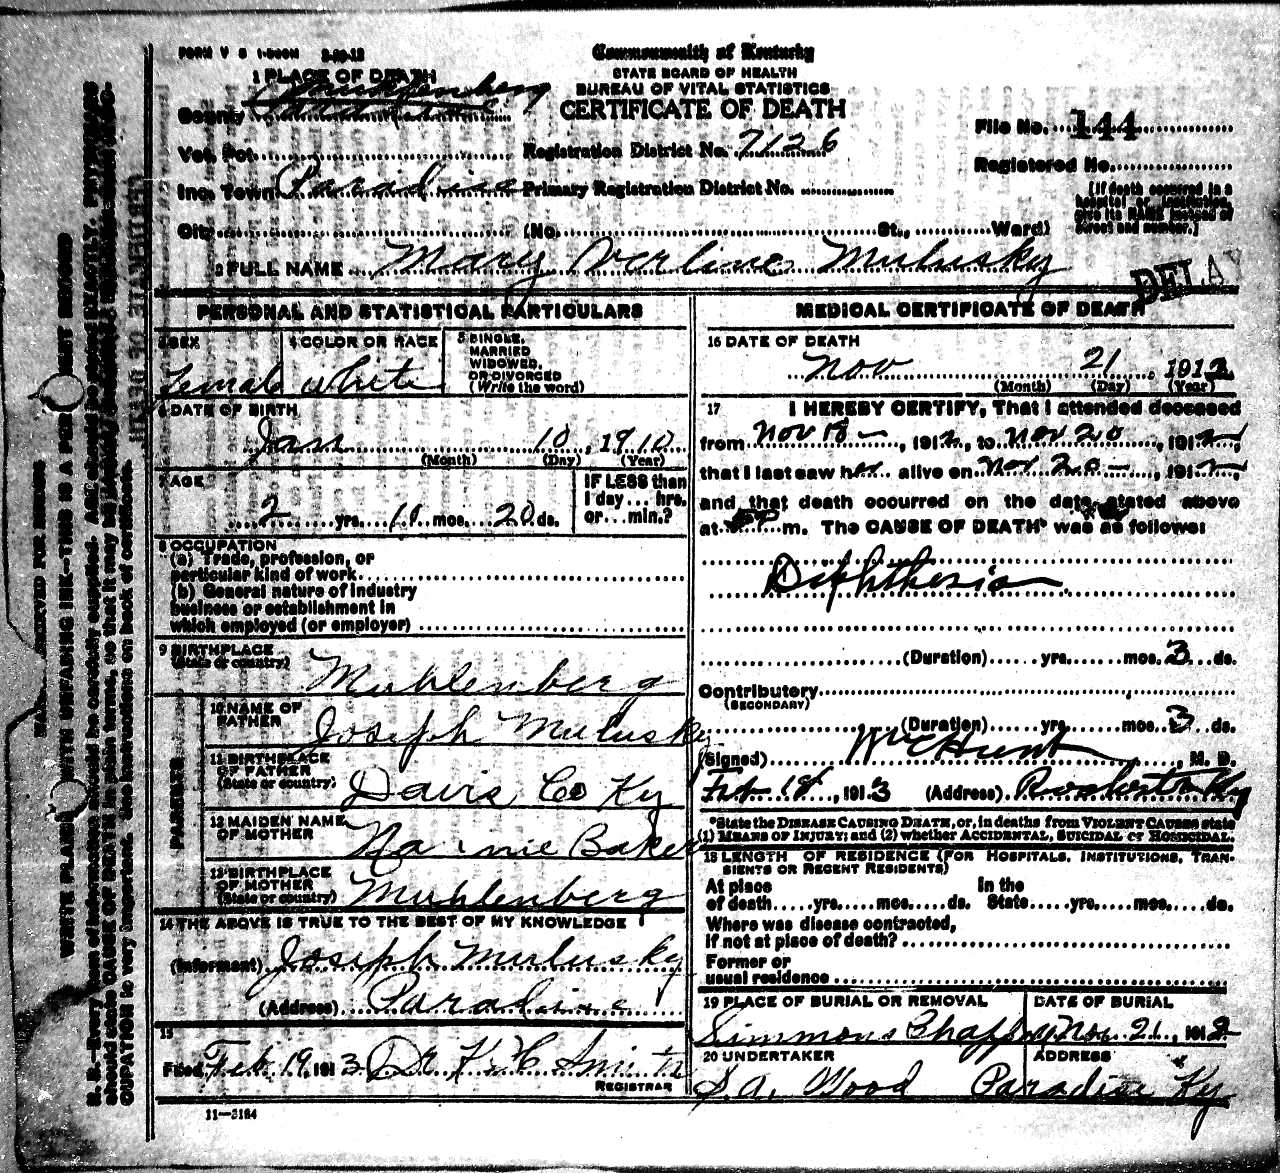 FORM V S
Commonwealth of Kentucky
STATE BOARD OF HEALTH
BUREAU OF VITAL STATISTICS
CERTIFICATE OF DEATH
1 PLACE OF DEATH
County Muhlenberg
File No. 144
Vot. Pct. Registration District No. 7126
Registered No.
Inc. Town Paradise Primary Registration District No.
(If death occurred in a hospital or institution, give its NAME instead of street and number.)
City (No. St., Ward)
2 FULL NAME Mary Verline Mulusky
DELAY
PERSONAL AND STATISTICAL PARTICULARS
3 SEX 4 COLOR OR RACE 5 SINGLE, MARRIED WIDOWED, OR DIVORCED (Write the word)
Female White
6 DATE OF BIRTH
Jan 10, 1910
(Month) (Day) (Year)
7 AGE
IF LESS than 1 day... hrs. or...min.?
2 yrs. 11 mos. 20 ds.
8 OCCUPATION
(a) Trade, profession, or
particular kind of work
(b) General nature of industry
business or establishment in
which employed (or employer)
9 BIRTHPLACE
(State or country) Muhlenberg
PARENTS
10 NAME OF FATHER Joseph Mulusky
11 BIRTHPLACE OF FATHER (State or country) Davis Co Ky
12 MAIDEN NAME OF MOTHER Baker
13 BIRTHPLACE OF MOTHER (State or country) Muhlenberg
14 THE ABOVE IS TRUE TO THE BEST OF MY KNOWLEDGE
(Informant) Joseph Mulusky
(Address) Paradise
15
Filed Feb 19 1913 Dr K H Smith
REGISTRAR
11-3184
MEDICAL CERTIFICATE OF DEATH
16 DATE OF DEATH
Nov 21, 1912
(Month) (Day) (Year)
17 I HEREBY CERTIFY, That I attended deceased
from Nov 18 -, 1912, to Nov 20, 1912,
that I last saw her alive on Nov 20 -, 1912
and that death occurred on the date stated above
at m. The CAUSE OF DEATH* was as follows:
Diphtheria
(Duration) yrs. mos. 3 ds.
Contributory
(SECONDARY)
(Duration) yrs. mos. 3 ds.
(Signed) Hunt, M. D.
Feb 18, 1913 (Address) Rochester Ky
*State the DISEASE CAUSING DEATH, or, in deaths from VIOLENT CAUSES state
(1) MEANS OF INJURY; and (2) whether ACCIDENTAL, SUICIDAL or HOMICIDAL.
18 LENGTH OF RESIDENCE (FOR HOSPITALS, INSTITUTIONS, TRAN-
SIENTS OR RECENT RESIDENTS)
At place In the
of death yrs. mos. ds. State yrs. mos. ds.
Where was disease contracted,
if not at place of death?
Former or
usual residence
19 PLACE OF BURIAL OR REMOVAL DATE OF BURIAL
Simmons Chappel Nov. 21, 1912
20 UNDERTAKER ADDRESS
S.A. Wood Paradise Ky
MARGIN RESERVED FOR BINDING
WRITE PLAINLY WITH UNFADING INK—THIS IS A PERMANENT RECORD
N. B.—Every item of information should be carefully supplied. AGE should be stated EXACTLY. PHYSICIANS
should state CAUSE OF DEATH in plain terms, so that it may be properly classified.
CUPATION is very important. See instructions on back of certificate.